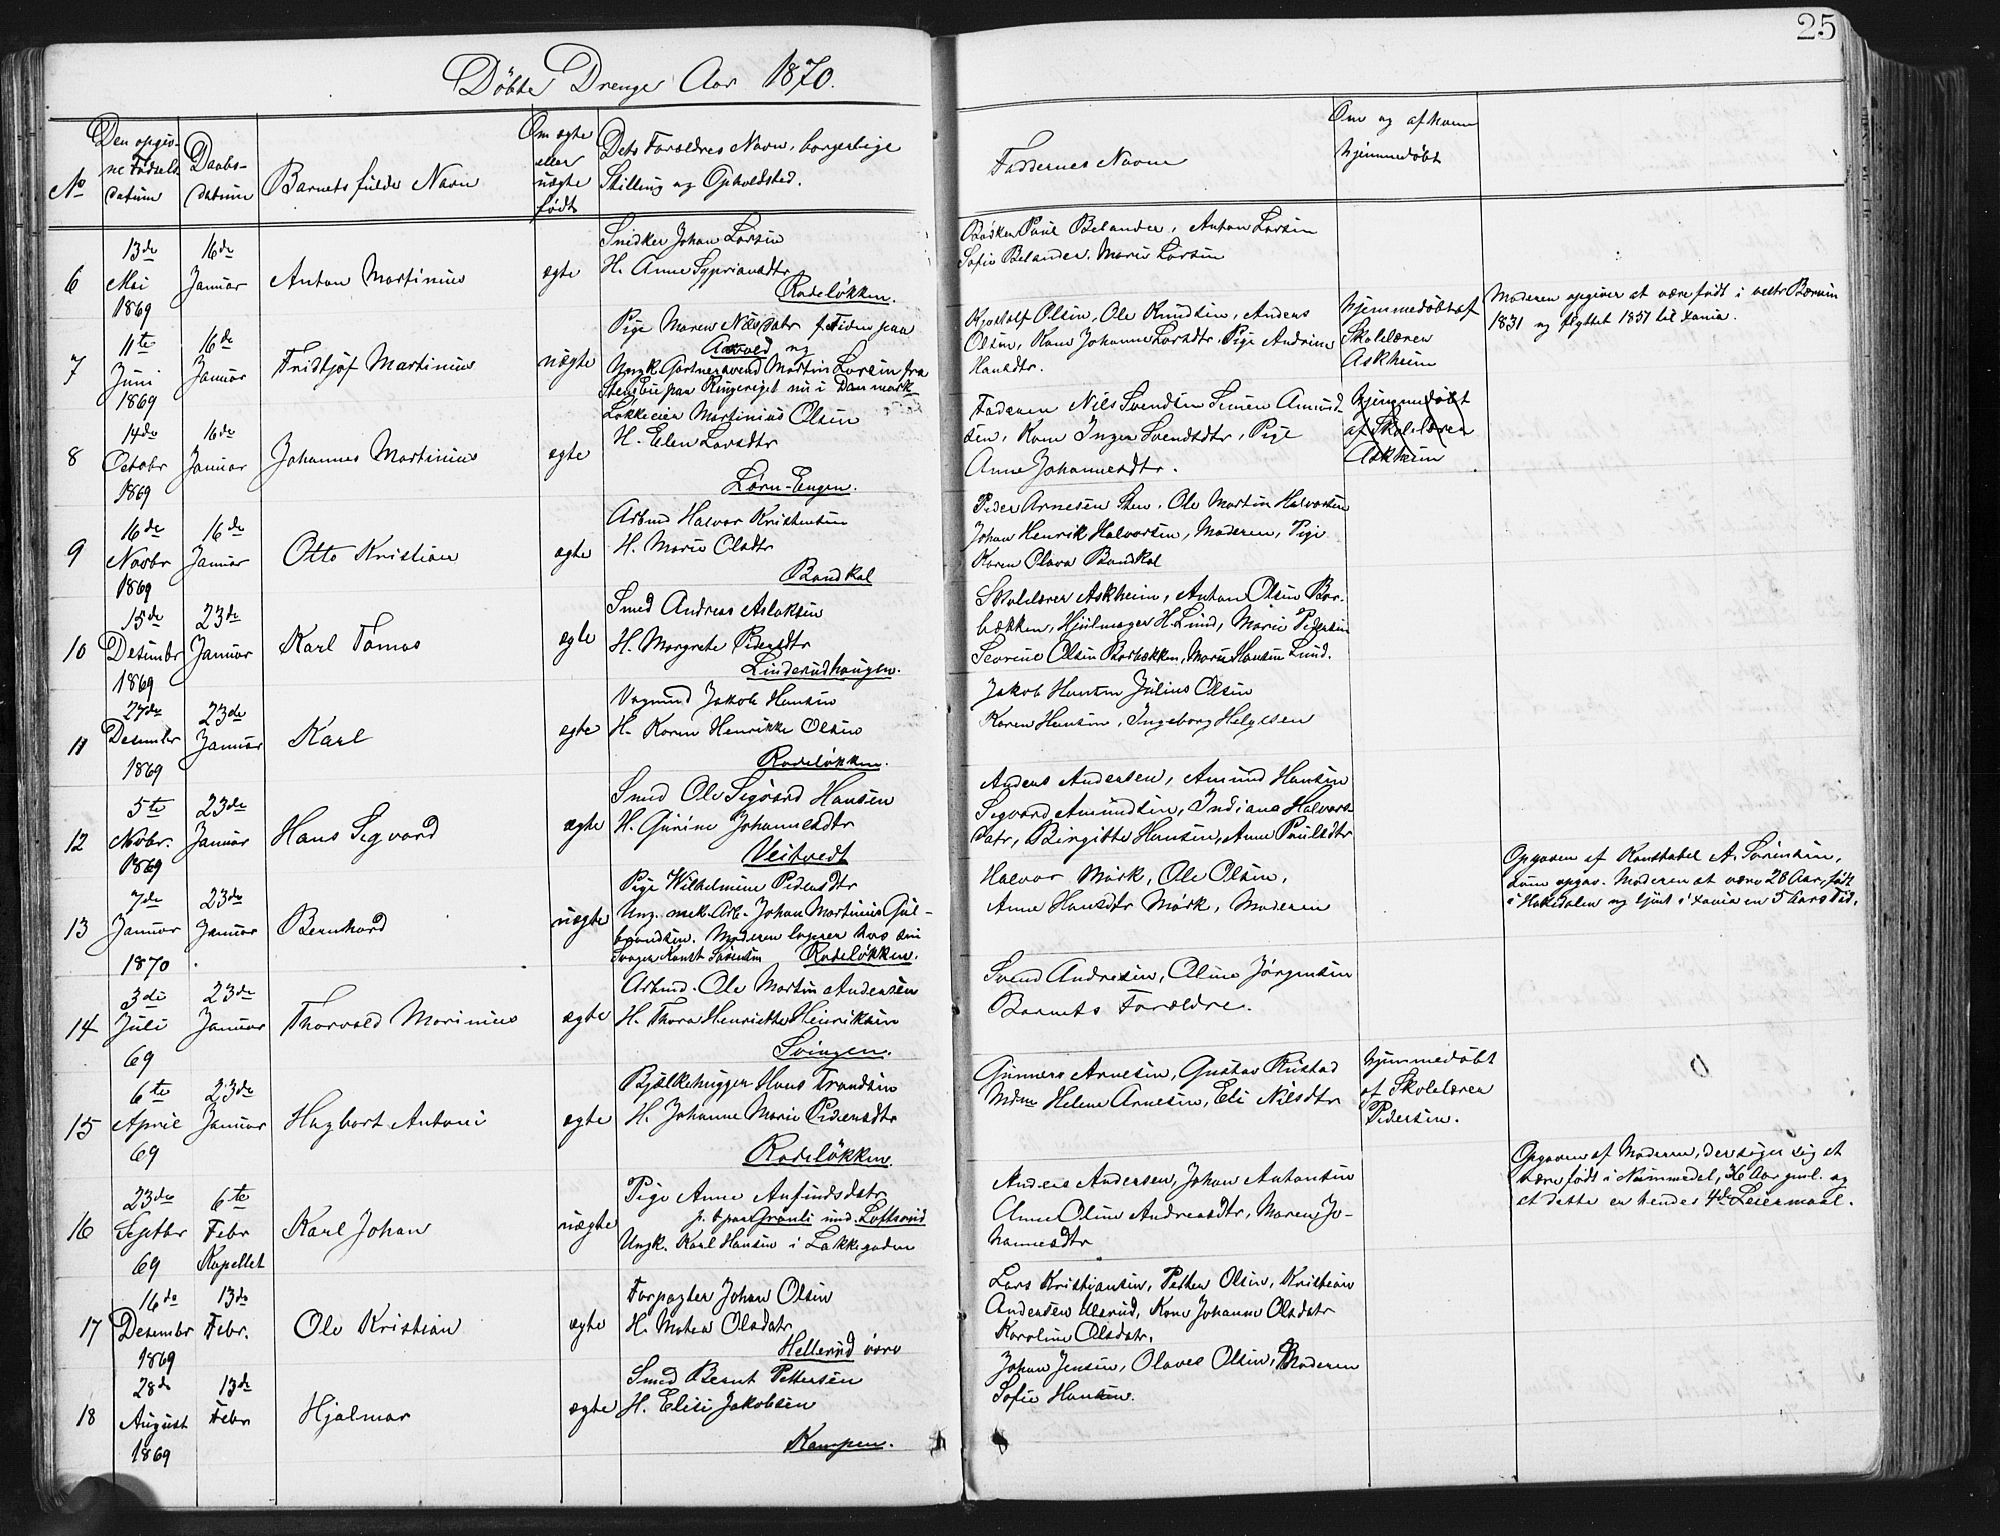 25
Döbte Drenge Aar 1870.
No
Den opgiv-
ne Fødsels
datum
Daabs-
datum
Barnets fulde Navn
Om ægte
eller
uægte
født
Dets Forældres Navn, borgerlige
Stilling og Opholdsted.
Faddernes Navne
Om og af hvem
hjemmedøbt
6
13de
Mai
1869
16de
Januar
Anton Martinius
ægte
Snidker Johan Larsen
H. Anne Sypriansdtr
Rodeløkken.
Paul Belander, Anton Larsen
Sofie Belander. Marie Larsen
7
11te
Juni
1869
16de
Januar
Fridtjof Martinius
uægte
Pige Maren Nilsdatr f. Tiden paa
Aavold og
Ungk. Gartnersvend Martin Larsen fra
Stensbu paa Ringeriget nu i Danmark
Olsen, Ole Knudsen, Anders
Olsen, Kone Johanne Larsdtr. Pige Andrine
Hansdtr.
hjemmedöbt af
Skolelærer
Askheim
Moderen opgiver at være født i vestr Bærum
1831 og flyttet 1851 til Xania.
8
14de
Octobr
1869
16de
Januar
Johannes Martinius
ægte
Løkkeeier Martinius Olsen
H. Elen Larsdtr
Lørn-Engen.
Faderen Nils Svendsen Simen Amund-
sen, Kone Inger Svendsdtr, Pige
Anne Johannesdtr.
hjemmedöbt
af Skolelærer
Askheim
9
16de
Novbr
1869
16de
Januar
Otto Kristian
ægte
Arbmd Halvor Kristensen
H. Marie Olsdtr
Bandkal
Peder Arnesen Sten. Ole Martin Halvorsen
Johan Henrik Halvorsen, Moderen, Pige
Karen Olava Bandkal
10
15de
Desembr
1869
23de
Januar
Karl Tomas
ægte
Smed Andreas Aslaksen
H. Margrete Pedersdtr
Linderudhaugen.
Skolelærer Askheim, Anton Olsen Bar-
bækken, Hjulmager H. Lund, Marie Pedersen
Severine Olsen Barbækken, Marie Hansen Lund.
11
27de
Desembr
1869
23de
Januar
Karl
ægte
Vogmnd Jakob Hansen
H. Karen Henrikke Olsen
Rodeløkken.
Jakob Hansen Julius Olsen
Karen Hansen, Ingeborg Helgesen
12
5te
Novbr.
1869
23de
Januar
Hans Segvard
ægte
Smed Ole Sigvard Hansen
H. Gurine Johannesdtr
Veitvedt
Anders Andersen, Amund Hansen
Segvard Amundsen, Indiana Halvors-
datr, Birgitte Hansen, Anne Paulsdtr
13
7de
Januar
1870
23de
Januar
Bernhard
uægte
Pige Wilhelmine Pedersdtr
Ung. mek. Arb. Johan Martinius Gul-
brandsen. Moderen logerer hos sin
Svoger Konst Sørensen Rodeløkken.
Halvor Mørk, Ole Olsen,
Anne Hansdtr Mørk, Moderen
Opgaven af Konstabel A. Sørensen,
som opgav. Moderen at være 28 Aar, født
i Hakedalen og tjent i Xania en 5 Aars Tid.
14
3die
Juli
69
23de
Januar
Thorvald Marinius
ægte
Arbmd. Ole Martin Andersen
H. Thora Henriette Henriksen
Svingen.
Svend Andresen, Oline Jørgensen
Barnets Forældre.
15
6te
April
69
23de
Januar
Hagbart Antoni
ægte
Bjelkehugger Hans Trondsen
H. Johanne Marie Pedersdtr
Rodeløkken.
Gunners Arnesen, Gustav Rustad
Mdme Helene Arnesen, Eli Nilsdtr
hjemmedöbt
af Skolelærer
Pedersen.
0
16
23de
Septbr
69
6te
Febr
Kapellet
Karl Johan
uægte
Pige Anne Anfindsdatr
p. t. paa Grønli und. Loftsrud
Ungk. Karl Hansen i Lakkegaden
Anders Andersen, Johan Antonsen
Anne Oline Andreasdtr, Maren Jo-
hannesdtr
Opgaven af Moderen, der siger sig at
være født i Nummedal, 36 Aar gml. og
at dette er hendes 4de Leiermaal.
17
16de
Desembr
1869
13de
Febr.
Ole Kristian
ægte
Forpagter Johan Olsen
H. Matea Olsdatr
Hellerud øvre
Lars Kristiansen, Petter Olsen, Kristian
Andersen Ulsrud, Kone Johanne Olsdatr
Karoline Olsdatr.
18
28de
August
1869
13de
Febr
Hjalmar
ægte
Smed Bernt Pettersen
H. Elise Jakobsen
Kampen.
Johan Jensen, Olaves Olsen, Moderen
Sofie Hansen.